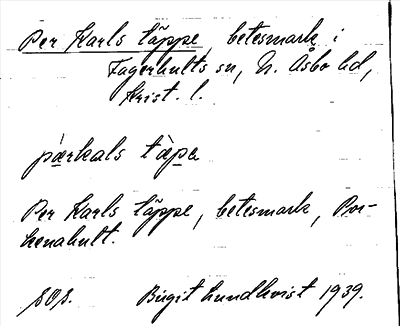 Per Karls täppe, betesmark i
Fagerhults sn, N. Åsbo hd,
Krist. l.
pærkals tàpa
Per Karls täppe, betesmark, Por-
kenahult.
Birgit Lundkvist 1939.